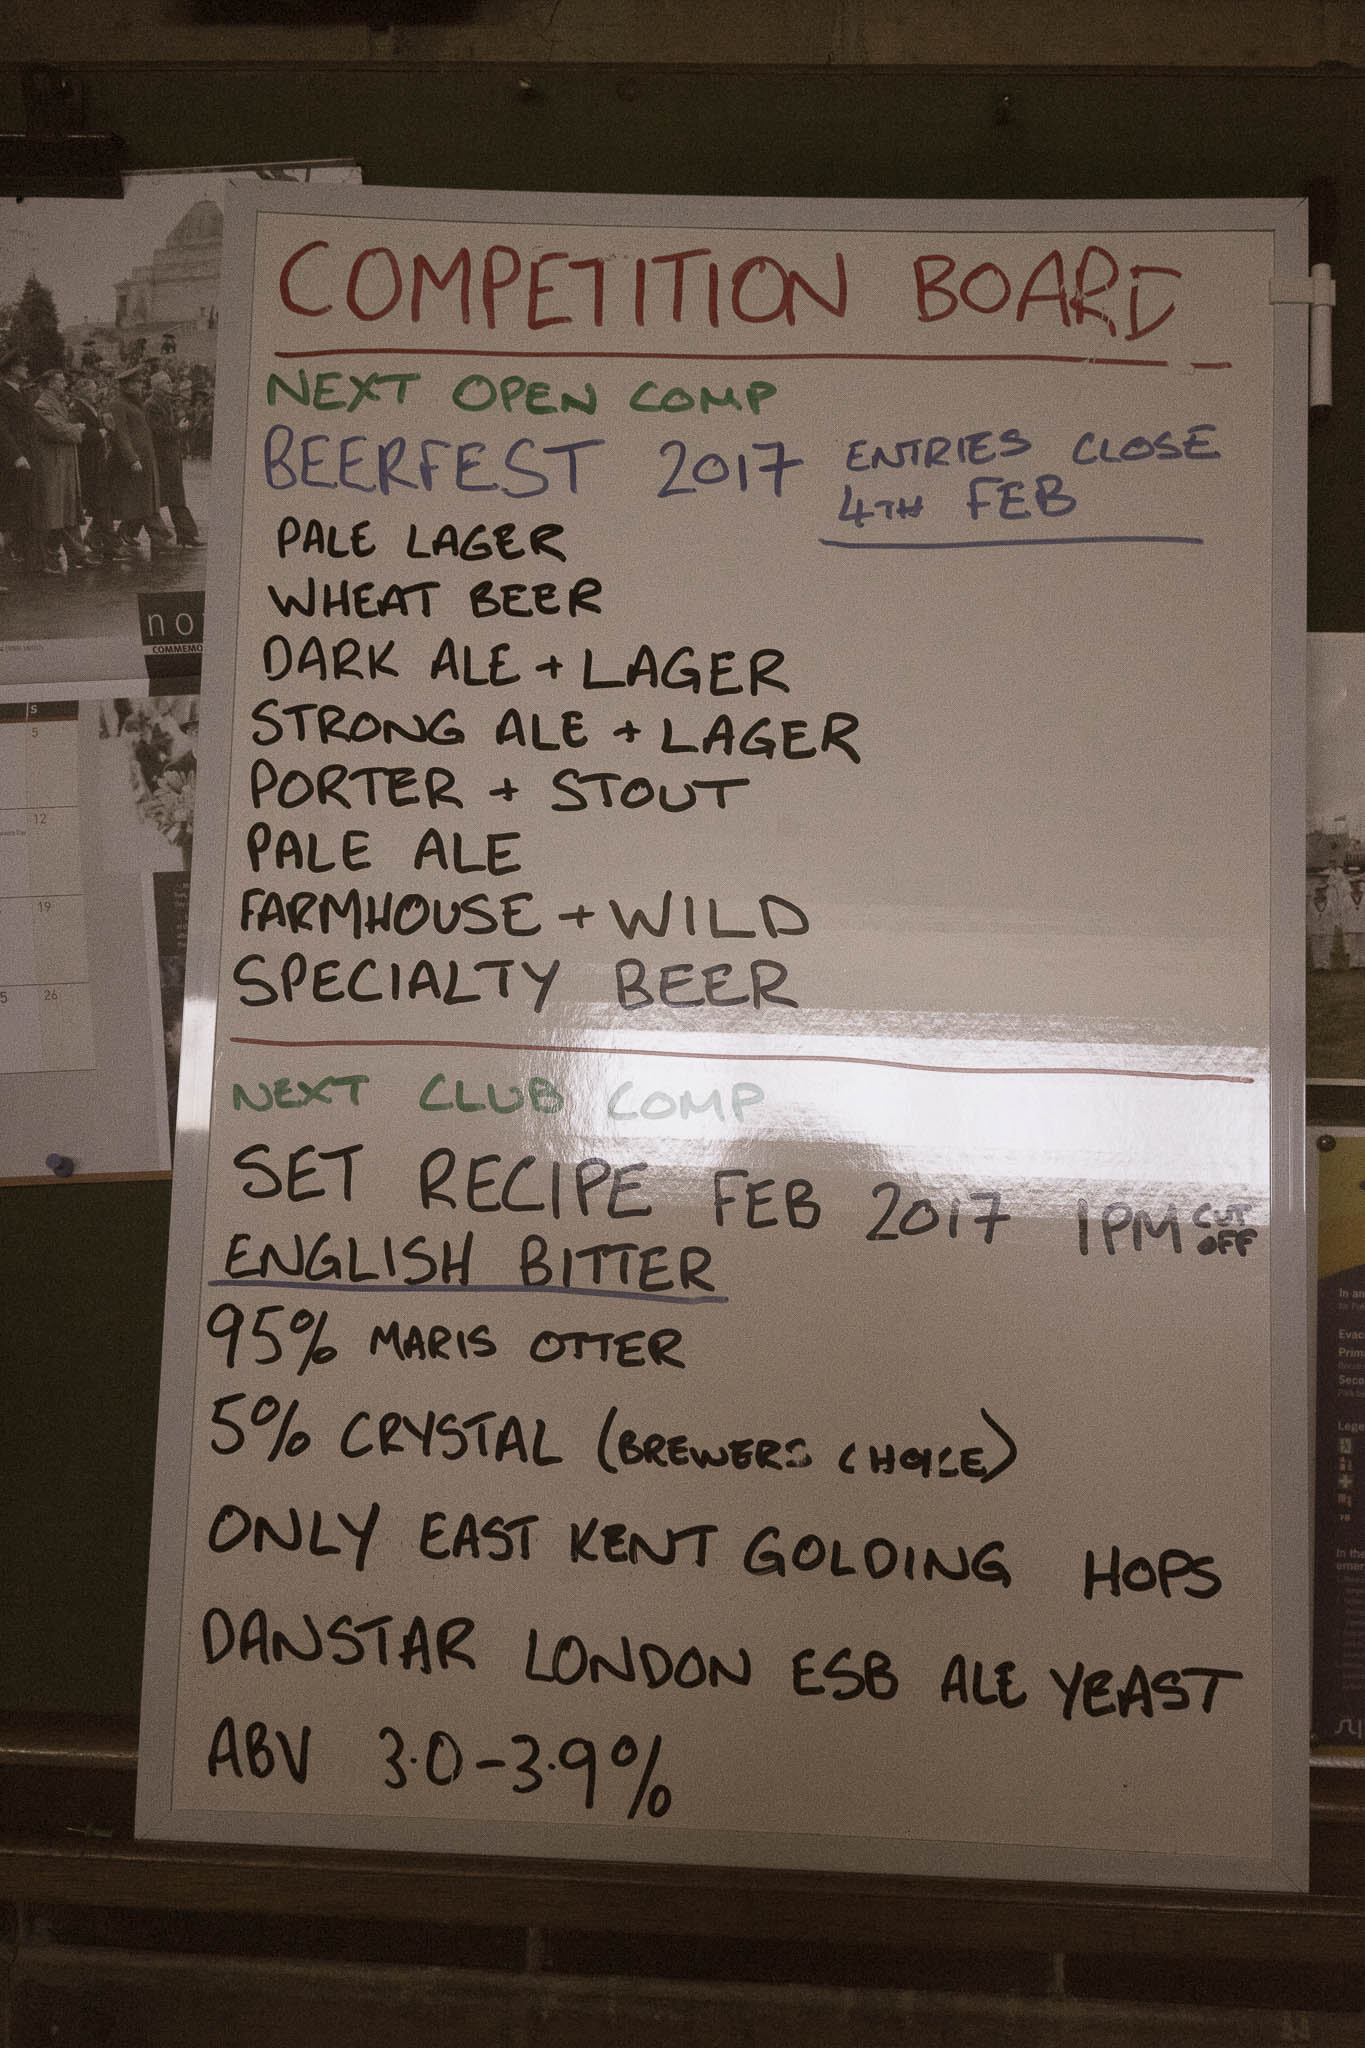 COMPETITION BOARD
NEXT OPEN COMP
BEERFEST 2017 ENTRIES CLOSE
4TH FEB
PALE LAGER
WHEAT BEER
DARK ALE + LAGER
STRONG ALE + LAGER
PORTER + STOUT
PALE ALE
FARMHOUSE + WILD
SPECIALTY BEER
NEXT CLUB COMP
SET RECIPE FEB 2017 1PM CUT OFF
ENGLISH BITTER
95% MARIS OTTER
5% CRYSTAL (BREWERS CHOICE)
ONLY EAST KENT GOLDING HOPS
DANSTAR LONDON ESB ALE YEAST
ABV 3.0-3.9%
no
COMMEMO
S
5
12
19
26
In an
Evac
Prim
Seco
Lege
In the
emer